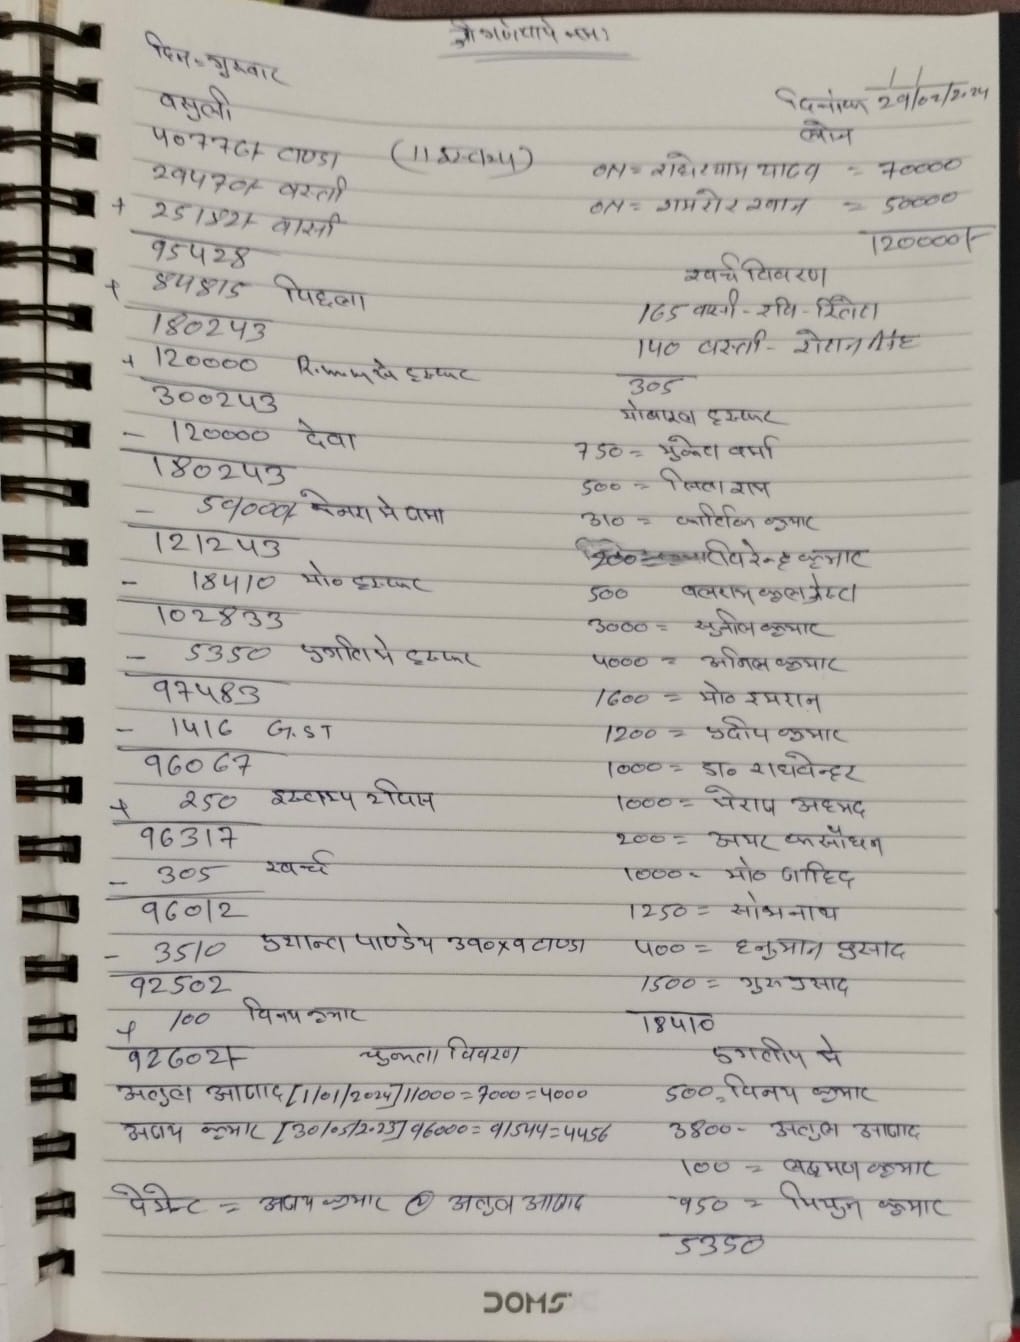 श्री गणेशाय नमः
दिन = गुरुवार
दिनांक 29/02/2024
वसुली
लोन
40776/- टाण्डा (11 स्टाम्प)
29470/- वस्ती
+ 25182/- वासी
95428
+ 84815 पिछला
180243
+ 120000
300243
- 120000 देवा
180243
- 59000/- केनरा मे जमा
121243
- 18410 मो०
102833
- 5350
97483
- 1416 G.ST
96067
+ 250 स्टाम्प
96317
- 305 खर्च
96012
- 3510 प्रशान्त पाण्डेय 390x9 टाण्डा
92502
+ 100 विनय कुमार
92602/-
चुकता विवरण
अतुल आजाद [1/01/2024] 11000 = 7000 = 4000
अजय कुमार [30/05/2023] 96000 = 91544 = 4456
पेमेन्ट = अजय कुमार @ अतुल आजाद
ON = राधेश्याम यादव = 70000
ON = शमशेर खान = 50000
120000/-
खर्च विवरण
165 वासी - रवि -
140 वस्ती - रोशन सिंह
305
750 = मुकेश वर्मा
500 =
310 = कार्तिक कुमार
वीरेन्द्र कुमार
500 बलराम
3000 = सुनील कुमार
4000 = अनिल कुमार
1600 = मो० इमरान
1200 = प्रदीप कुमार
1000 = डा० राघवेन्द्र
1000 = मेराज अहमद
200 = अमर कसौधन
1000 = मो० जाहिद
1250 = सोमनाथ
400 = हनुमान प्रसाद
1500 = गुरु प्रसाद
18410
मे
500 = विनय कुमार
3800 - अतुल आजाद
100 = लक्ष्मण कुमार
950 = मिथुन कुमार
5350
DOMS